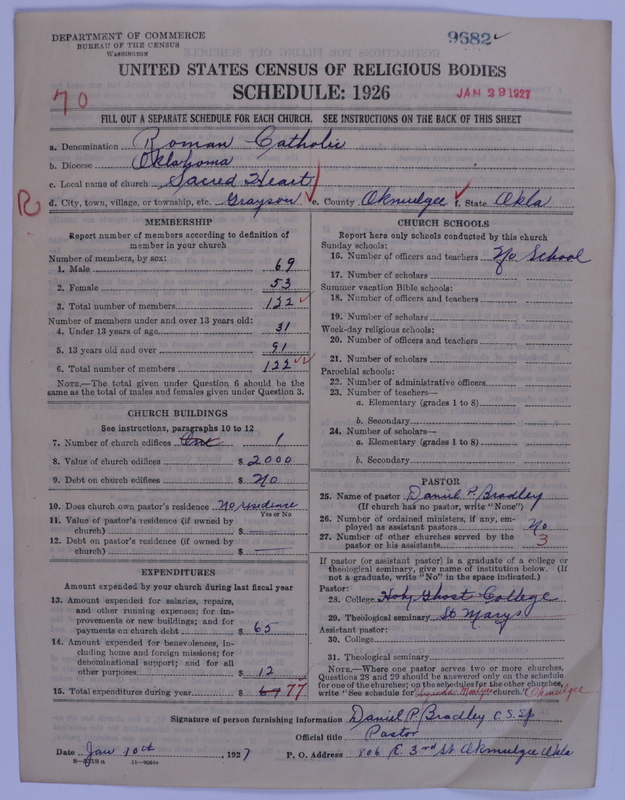 DEPARTMENT OF COMMERCE
BUREAU OF THE CENSUS
WASHINGTON
9682
UNITED STATES CENSUS OF RELIGIOUS BODIES
SCHEDULE: 1926
70
JAN 29 1927
FILL OUT A SEPARATE SCHEDULE FOR EACH CHURCH. SEE INSTRUCTIONS ON THE BACK OF THIS SHEET
a. Denomination Roman Catholic
b. Diocese Oklahoma
c. Local name of church Sacred Heart
R
d. City, town, village, or township, etc. Grayson e. County Okmulgee f. State Okla
MEMBERSHIP
Report number of members according to definition of
member in your church
Number of members, by sex:
1. Male 69
2. Female 53
3. Total number of members 122
Number of members under and over 13 years old:
4. Under 13 years of age 31
5. 13 years old and over 91
6. Total number of members 122
NOTE.—The total given under Question 6 should be the
same as the total of males and females given under Question 3.
CHURCH BUILDINGS
See instructions, paragraphs 10 to 12
7. Number of church edifices One 1
8. Value of church edifices $ 2000
9. Debt on church edifices $ No
10. Does church own pastor's residence no residence
Yes or No
11. Value of pastor's residence (if owned by
church) $
12. Debt on pastor's residence (if owned by
church) $
EXPENDITURES
Amount expended by your church during last fiscal year
13. Amount expended for salaries, repairs,
and other running expenses; for im-
provements or new buildings; and for
payments on church debt $ 65
14. Amount expended for benevolences, in-
cluding home and foreign missions; for
denominational support; and for all
other purposes $ 12
15. Total expenditures during year $ 77
CHURCH SCHOOLS
Report here only schools conducted by this church
Sunday schools:
16. Number of officers and teachers No School
17. Number of scholars
Summer vacation Bible schools:
18. Number of officers and teachers
19. Number of scholars
Week-day religious schools:
20. Number of officers and teachers
21. Number of scholars
Parochial schools:
22. Number of administrative officers
23. Number of teachers—
a. Elementary (grades 1 to 8)
b. Secondary
24. Number of scholars—
a. Elementary (grades 1 to 8)
b. Secondary
PASTOR
25. Name of pastor Daniel P. Bradley
(If church has no pastor, write "None")
26. Number of ordained ministers, if any, em-
ployed as assistant pastors No
27. Number of other churches served by the
pastor or his assistants 3
If pastor (or assistant pastor) is a graduate of a college or
theological seminary, give name of institution below. (If
not a graduate, write "No" in the space indicated.)
Pastor:
28. College Holy Ghost College
29. Theological seminary St Marys
Assistant pastor:
30. College
31. Theological seminary
NOTE.—Where one pastor serves two or more churches,
Questions 28 and 29 should be answered only on the schedule
for one of the churches; on the schedules for the other churches,
write "See schedule for church." Okmulgee
Signature of person furnishing information Daniel P. Bradley C.S.Sp
Official title Pastor
Date Jan 10th, 1927 P. O. Address 806 E 3rd St Okmulgee Okla